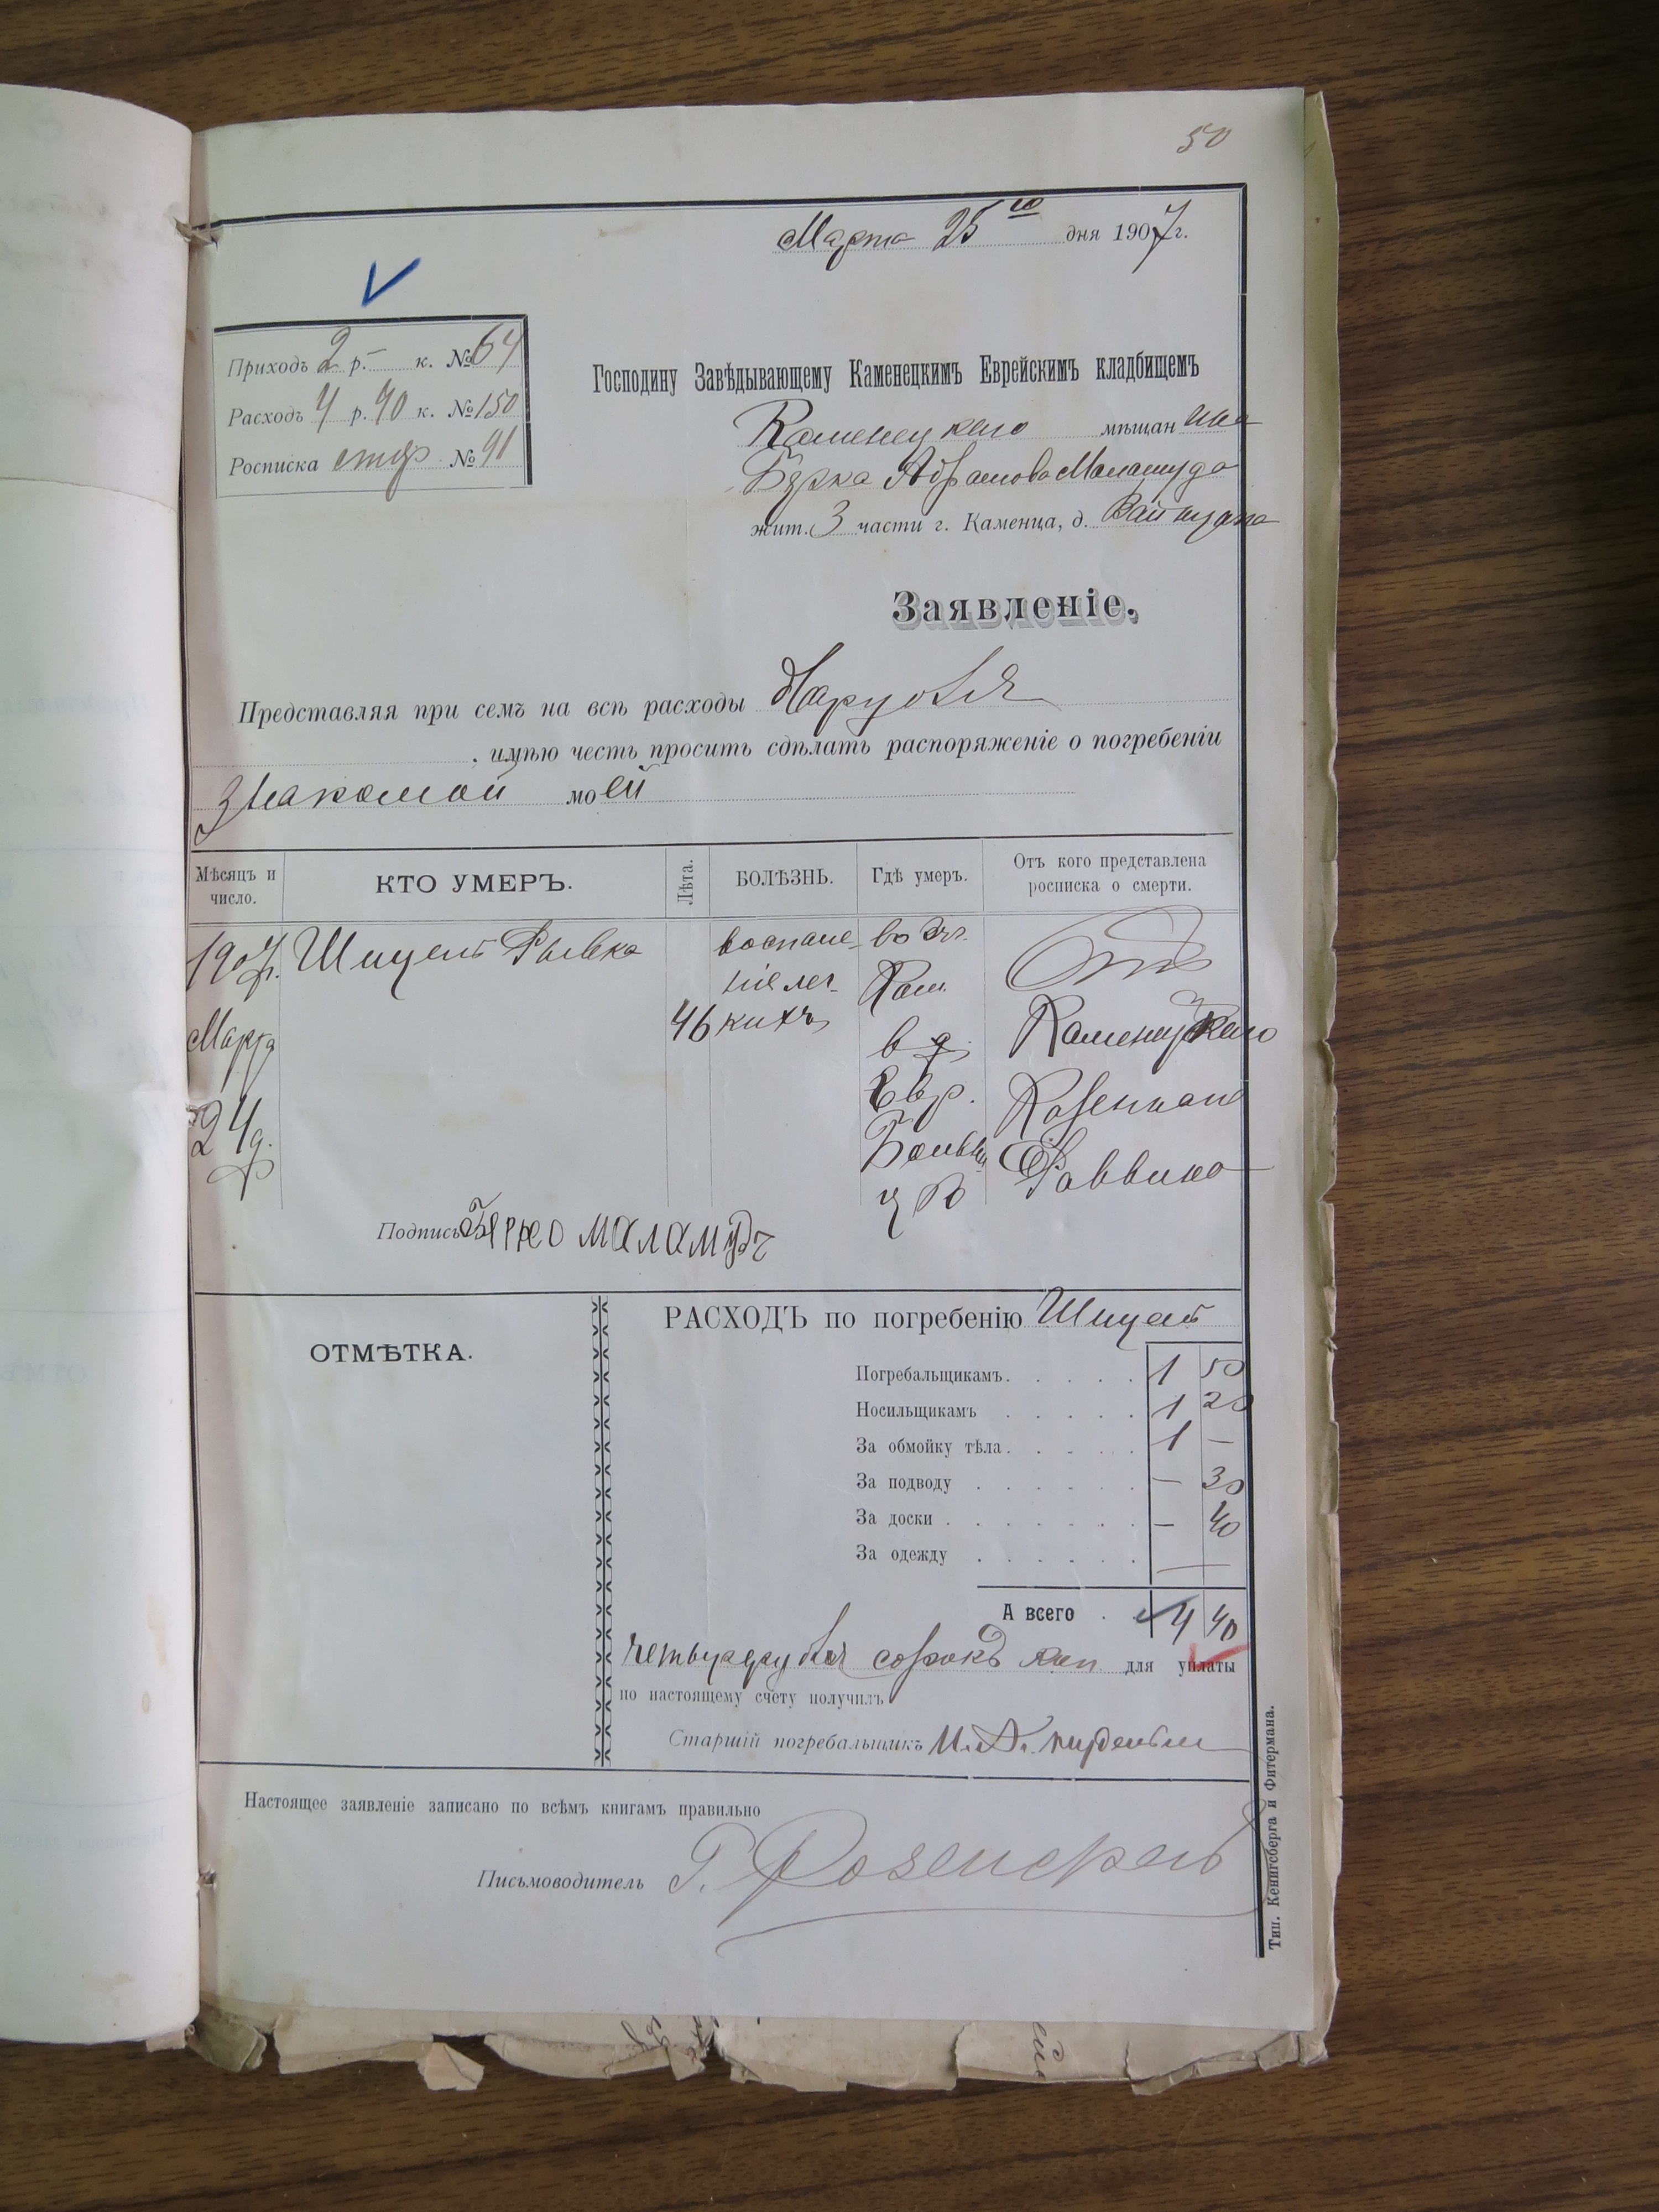 50
Марта 25го дня 1907 г.
Приходъ 2 р. – к. № 64
Расходъ 4 р. 40 к. № 150
Росписка № 91
Господину Завѣдывающему Каменецкимъ Еврейскимъ кладбищемъ
Каменецкаго мѣщанина
Берка Абрамова Маламуда
жит. 3 части г. Каменца, д.
Заявленіе.
Представляя при семъ на всѣ расходы
, имѣю честь просить сдѣлать распоряженіе о погребеніи
знакомой моей
Мѣсяцъ и число.
КТО УМЕРЪ.
Лѣта.
БОЛѢЗНЬ.
Гдѣ умеръ.
Отъ кого представлена росписка о смерти.
1907 г.
Марта
24 д.
Шпцель Рывка
46
воспале-
ніе лег-
кихъ
во 2 ч.
Кам.
в д.
Евр.
Больни
ц
Каменецкаго
Казеннаго
Раввина
Подпись Берко маламудъ
ОТМѢТКА.
РАСХОДЪ по погребенію Шпцель
Погребальщикамъ . . . . . 1 50
Носильщикамъ . . . . . 1 20
За обмойку тѣла . . . . . 1 –
За подводу . . . . . . – 30
За доски . . . . . . . – 40
За одежду . . . . . . —
А всего . . 4 40
четыре рубля сорокъ коп для уплаты
по настоящему счету получилъ
Старшій погребальщикъ
Настоящее заявленіе записано по всѣмъ книгамъ правильно
Письмоводитель Г.
Тип. Кенигсберга и Фитермана.